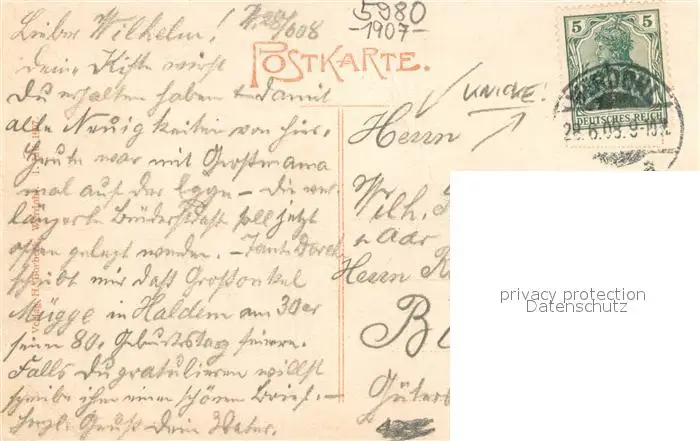 Lieber Wilhelm! W. 28/6 08
Deine Kiste wirst
Du erhalten haben & damit
alle Neuigkeiten von hier.
Heute war mit Großmama
mal auf der Egge – Die ver-
längerte Brüderstraße soll jetzt
offen gelegt werden. – Tante Dorch
schreibt mir daß Großonkel
Mügge in Haldem am 30er
seinen 80. Geburtstag feiere.
Falls Du gratulieren willst
schreibe ihm einen schönen Brief. –
Herzl. Gruß Dein Vater.
5980
-1907-
POSTKARTE.
UNICLE!
5 5
DEUTSCHES REICH
28.6.08.9-10
Herrn
Wilh.
Herrn
B
Güter
Verlag H.
privacy protection
Datenschutz